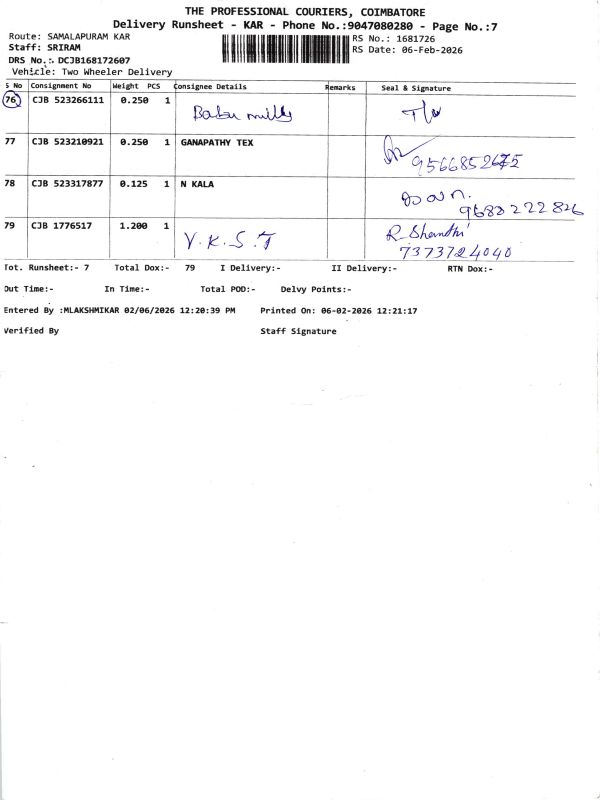 THE PROFESSIONAL COURIERS, COIMBATORE
Delivery Runsheet - KAR - Phone No.:9047080280 - Page No.:7
Route: SAMALAPURAM KAR
RS No.: 1681726
Staff: SRIRAM
RS Date: 06-Feb-2026
DRS No.: DCJB168172607
Vehicle: Two Wheeler Delivery
S No Consignment No Weight PCS Consignee Details Remarks Seal & Signature
76 CJB 523266111 0.250 1 Babu mills
77 CJB 523210921 0.250 1 GANAPATHY TEX 9566852675
78 CJB 523317877 0.125 1 N KALA 9688222826
79 CJB 1776517 1.200 1 V.K.S.T R. Shanthi
7373724040
Tot. Runsheet:- 7 Total Dox:- 79 I Delivery:- II Delivery:- RTN Dox:-
Out Time:- In Time:- Total POD:- Delvy Points:-
Entered By :MLAKSHMIKAR 02/06/2026 12:20:39 PM Printed On: 06-02-2026 12:21:17
Verified By Staff Signature